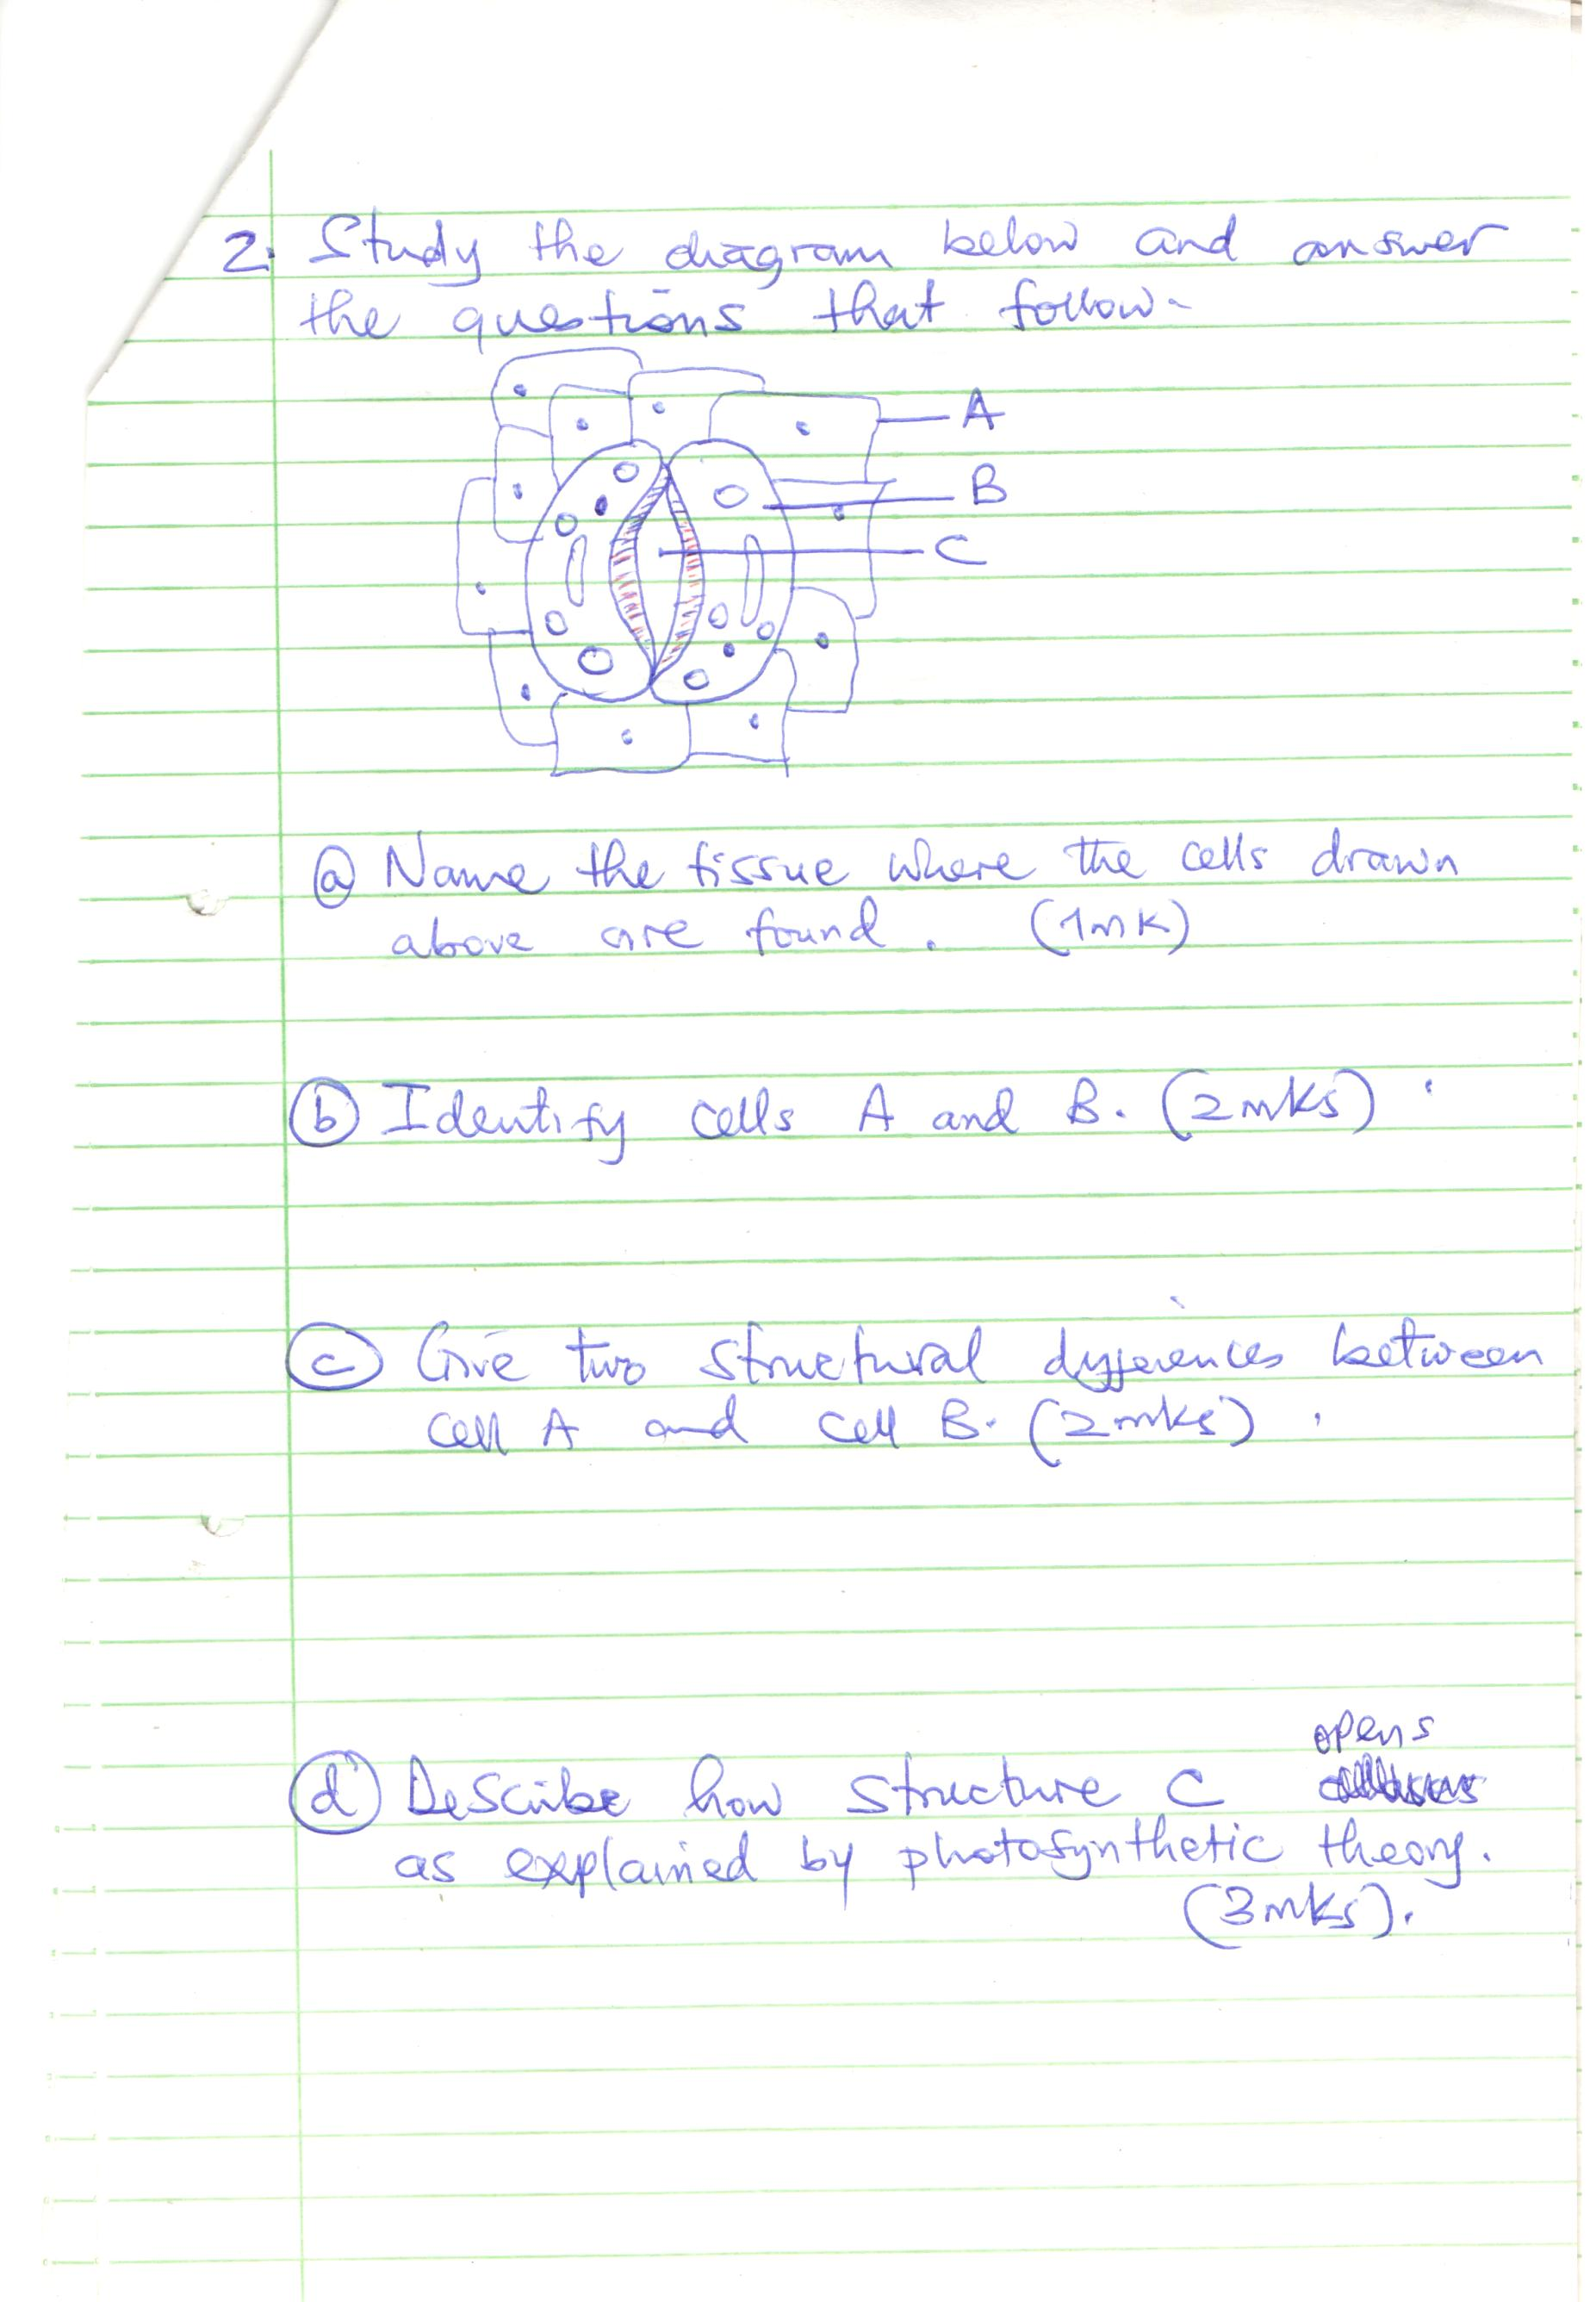 2. Study the diagram below and answer
the questions that follow-
A
B
C
(a) Name the tissue where the cells drawn
above are found. (1mk)
(b) Identify cells A and B. (2mks)
(c) Give two structural differences between
cell A and cell B. (2mks).
opens
(d) Describe how structure C
as explained by photosynthetic theory.
(3mks).